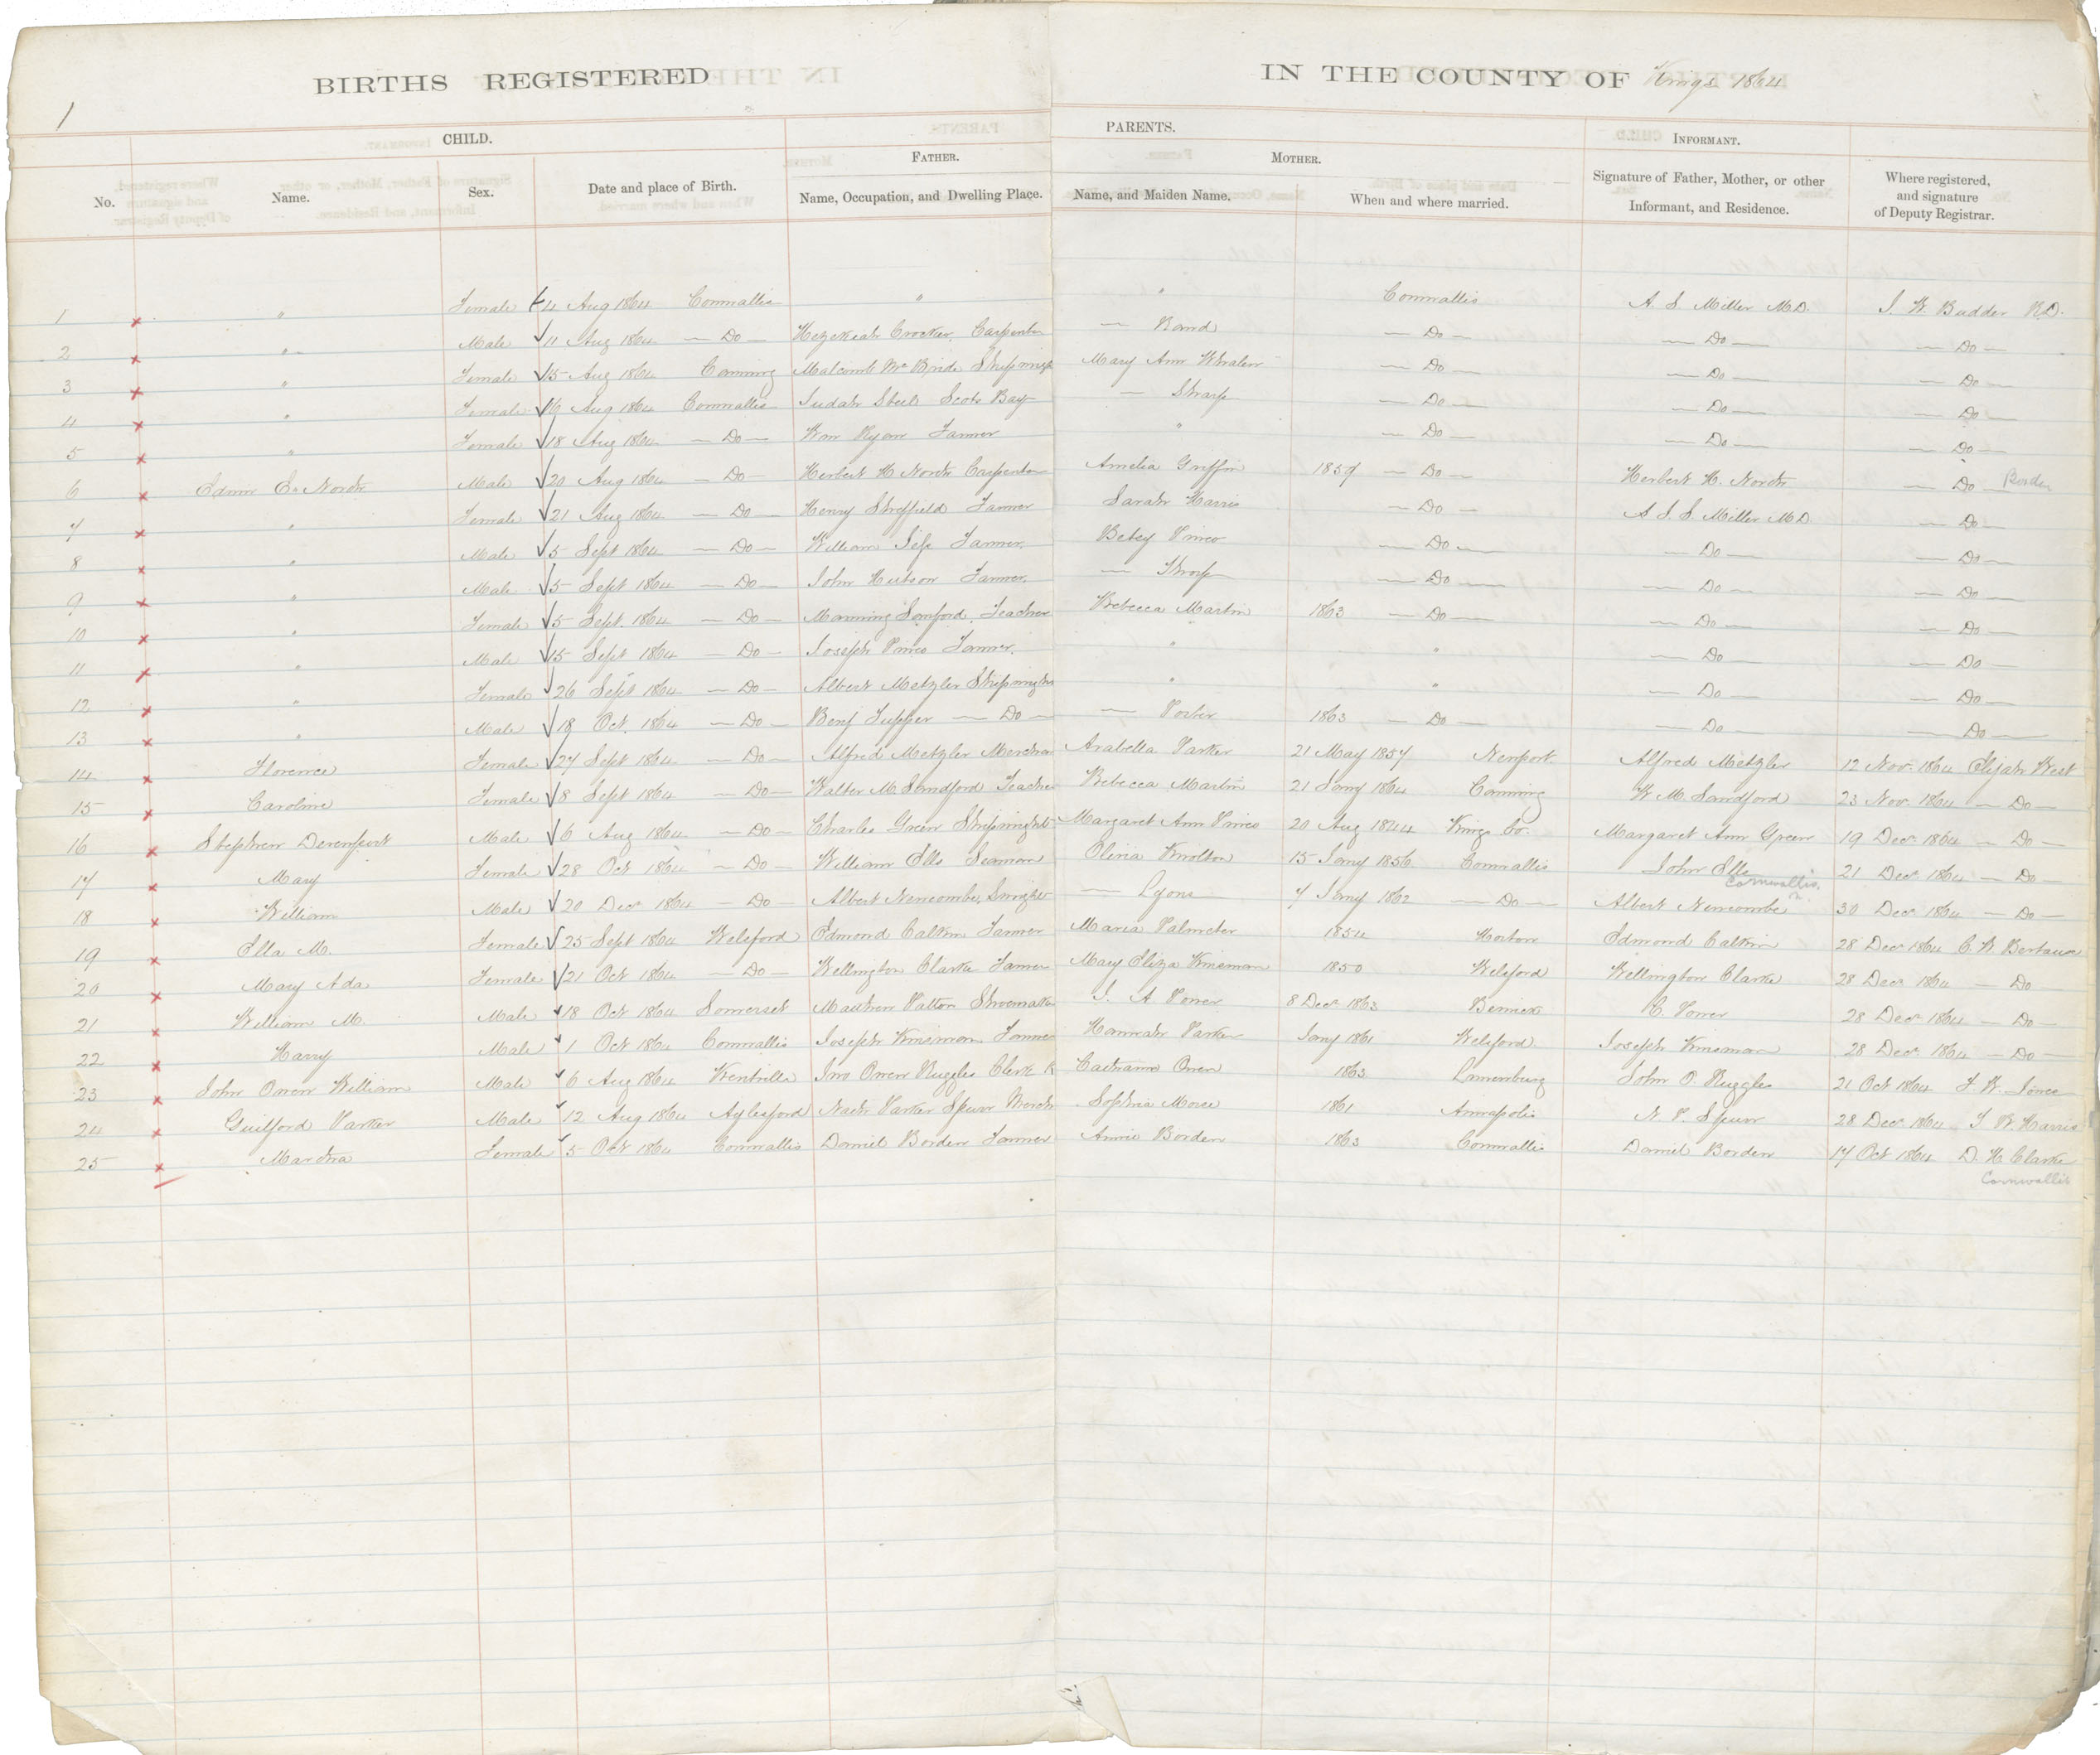 BIRTHS REGISTERED IN THE COUNTY OF Kings 1864
1
CHILD. PARENTS. INFORMANT.
FATHER. MOTHER.
No. Name. Sex. Date and place of Birth. Name, Occupation, and Dwelling Place. Name, and Maiden Name. When and where married. Signature of Father, Mother, or other Informant, and Residence. Where registered, and signature of Deputy Registrar.
1 " Female 4 Aug 1864 Cornwallis " " Cornwallis A S Miller M.D.
2 " Male 11 Aug 1864 — Do — Hezekiah Crocker, Carpenter — Rand — Do — — Do — — Do —
3 " Female 15 Aug 1864 Canning Malcomb McBride Mary Ann Whalen — Do — — Do — — Do —
4 " Female 16 Aug 1864 Cornwallis Judah Steele Scots Bay — Sharp — Do — — Do — — Do —
5 " Female 18 Aug 1864 — Do — Wm Ryan Farmer " — Do — — Do — — Do —
6 Edwin E. North Male 20 Aug 1864 — Do — Herbert H North Carpenter Amelia Griffin 1859 — Do — Herbert H. North — Do — Borden
7 " Female 21 Aug 1864 — Do — Henry Sheffield Farmer Sarah Harris — Do — A. S. S. Miller M.D. — Do —
8 " Male 5 Sept 1864 — Do — William Farmer Betsy Pineo — Do — — Do — — Do —
9 " Male 5 Sept 1864 — Do — John Hutson Farmer — Tharp — Do — — Do — — Do —
10 " Female 5 Sept. 1864 — Do — Manning Sanford, Teacher Rebecca Martin 1863 — Do — — Do — — Do —
11 " Male 15 Sept 1864 — Do — Joseph Pineo Farmer " " — Do — — Do —
12 " Female 26 Sept 1864 — Do — Albert Metzler " " — Do — — Do —
13 " Male 18 Oct. 1864 — Do — Benj Tupper — Do — — Porter 1863 — Do — — Do — — Do —
14 Florence Female 27 Sept 1864 — Do — Alfred Metzler Arabella Parker 21 May 1857 Newport Alfred Metzler 12 Nov. 1864 Elijah West
15 Caroline Female 8 Sept 1864 — Do — Walter M Sandford Rebecca Martin 21 Jany 1864 Canning W M Sandford 23 Nov. 1864 — Do —
16 Stephen Devenport Male 6 Aug 1864 — Do — Charles Green Shipwright Margaret Ann Pineo 20 Aug 1844 Kings Co. Margaret Ann Green 19 Decr 1864 — Do —
17 Mary Female 28 Oct 1864 — Do — William Ells Seaman Olivia Knolton 15 Jany 1856 Cornwallis John Ells 21 Decr 1864 — Do —
Cornwallis
18 William Male 20 Decr 1864 — Do — Albert Newcombe — Lyons 7 Jany 1862 — Do — Albert Newcombe 30 Decr 1864 — Do —
19 Ella M. Female 25 Sept 1864 Welsford Edmond Calkin Farmer Maria Palmeter 1854 Horton Edmond Calkin 28 Decr 1864
20 Mary Ada Female 21 Oct 1864 — Do — Wellington Clarke Farmer Mary Eliza Kinsman 1850 Welsford Wellington Clarke 28 Decr 1864 — Do —
21 William M. Male 18 Oct 1864 Somerset Matthew Patton Shoemaker 8 Decr 1863 Berwick 28 Decr 1864 — Do —
22 Harry Male 1 Oct 1864 Cornwallis Joseph Kinsman Farmer Hannah Parker Jany 1861 Welsford Joseph Kinsman 28 Decr 1864 — Do —
23 John Owen William Male 6 Aug 1864 Kentville Jno Owen Ruggles Clerk Owen 1863 Lunenburg John O. Ruggles 21 Oct 1864
24 Guilford Parker Male 12 Aug 1864 Aylesford Parker Spurr Sophia Morse 1861 Annapolis N. P. Spurr 28 Decr 1864 Harris
25 Martha Female 5 Oct 1864 Cornwallis Daniel Borden Farmer Annie Borden 1863 Cornwallis Daniel Borden 17 Oct 1864 D. H Clarke
Cornwallis